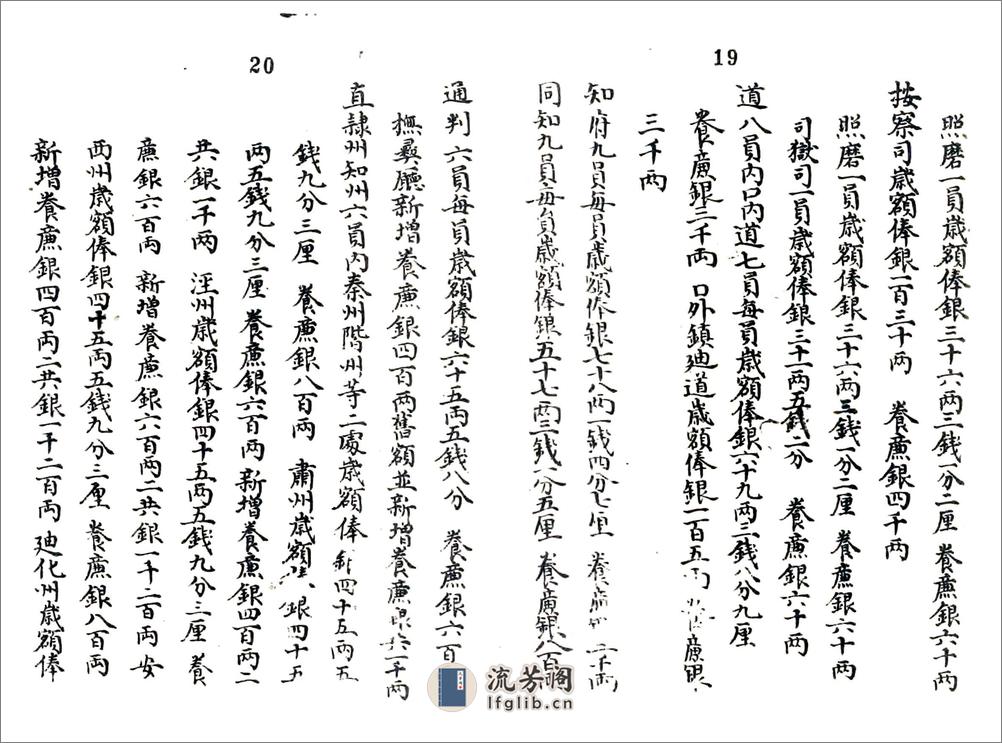 19
照磨一員歲額俸銀三十六兩三錢一分二厘 養廉銀六十兩
按察司歲額俸銀一百三十兩 養廉銀四千兩
照磨一員歲額俸銀三十六兩三錢一分二厘 養廉銀六十兩
司獄司一員歲額俸銀三十一兩五錢二分 養廉銀六十兩
道八員內口內道七員每員歲額俸銀六十九兩三錢八分九厘
養廉銀三千兩 口外鎮廸道歲額俸銀一百五兩 養廉銀
三千兩
知府九員每員歲額俸銀七十八兩一錢四分七厘 養廉銀二千兩
同知九員每員歲額俸銀五十七兩三錢八分五厘 養廉銀八百
20
通判六員每員歲額俸銀六十五兩五錢八分 養廉銀六百
撫彝廳新增養廉銀四百兩舊額並新增養廉銀共一千兩
直隸州知州六員內秦州階州等二處歲額俸銀四十五兩五
錢九分三厘 養廉銀八百兩 肅州歲額 銀四十五
兩五錢九分三厘 養廉銀六百兩 新增養廉銀四百兩二
共銀一千兩 涇州歲額俸銀四十五兩五錢九分三厘 養
廉銀六百兩 新增養廉銀六百兩二共銀一千二百兩 安
西州歲額俸銀四十五兩五錢九分三厘 養廉銀八百兩
新增養廉銀四百兩二共銀一千二百兩 廸化州歲額俸
流芳閣
lfglib.cn